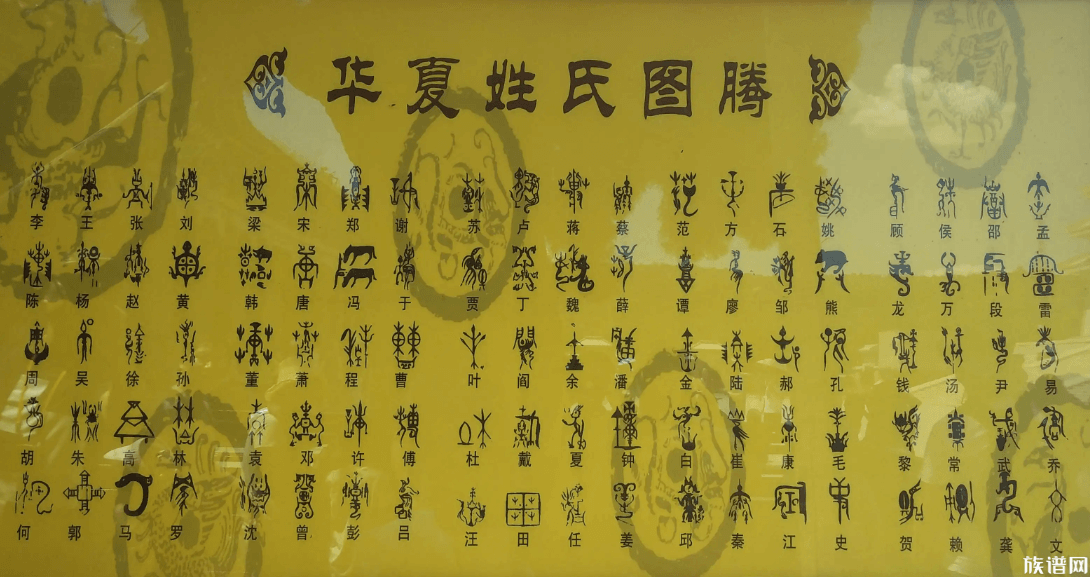 华夏姓氏图腾
李 王 张 刘 梁 宋 郑 谢 苏 卢 蒋 蔡 范 方 石 姚 顾 侯 邵 孟
陈 杨 赵 黄 韩 唐 冯 于 贾 丁 魏 薛 谭 廖 邹 熊 龙 万 段 雷
周 吴 徐 孙 董 萧 程 曹 叶 阎 余 潘 金 陆 郝 孔 钱 汤 尹 易
胡 朱 高 林 袁 邓 许 傅 杜 戴 夏 钟 白 崔 康 毛 黎 常 武 乔
何 郭 马 罗 沈 曾 彭 吕 汪 田 任 姜 邱 秦 江 史 贺 赖 龚 文
族谱网